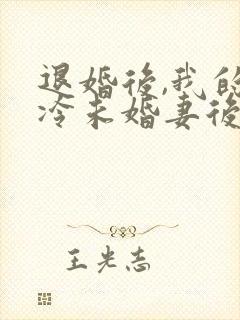 退婚後,我的
冷未婚妻後
王光志